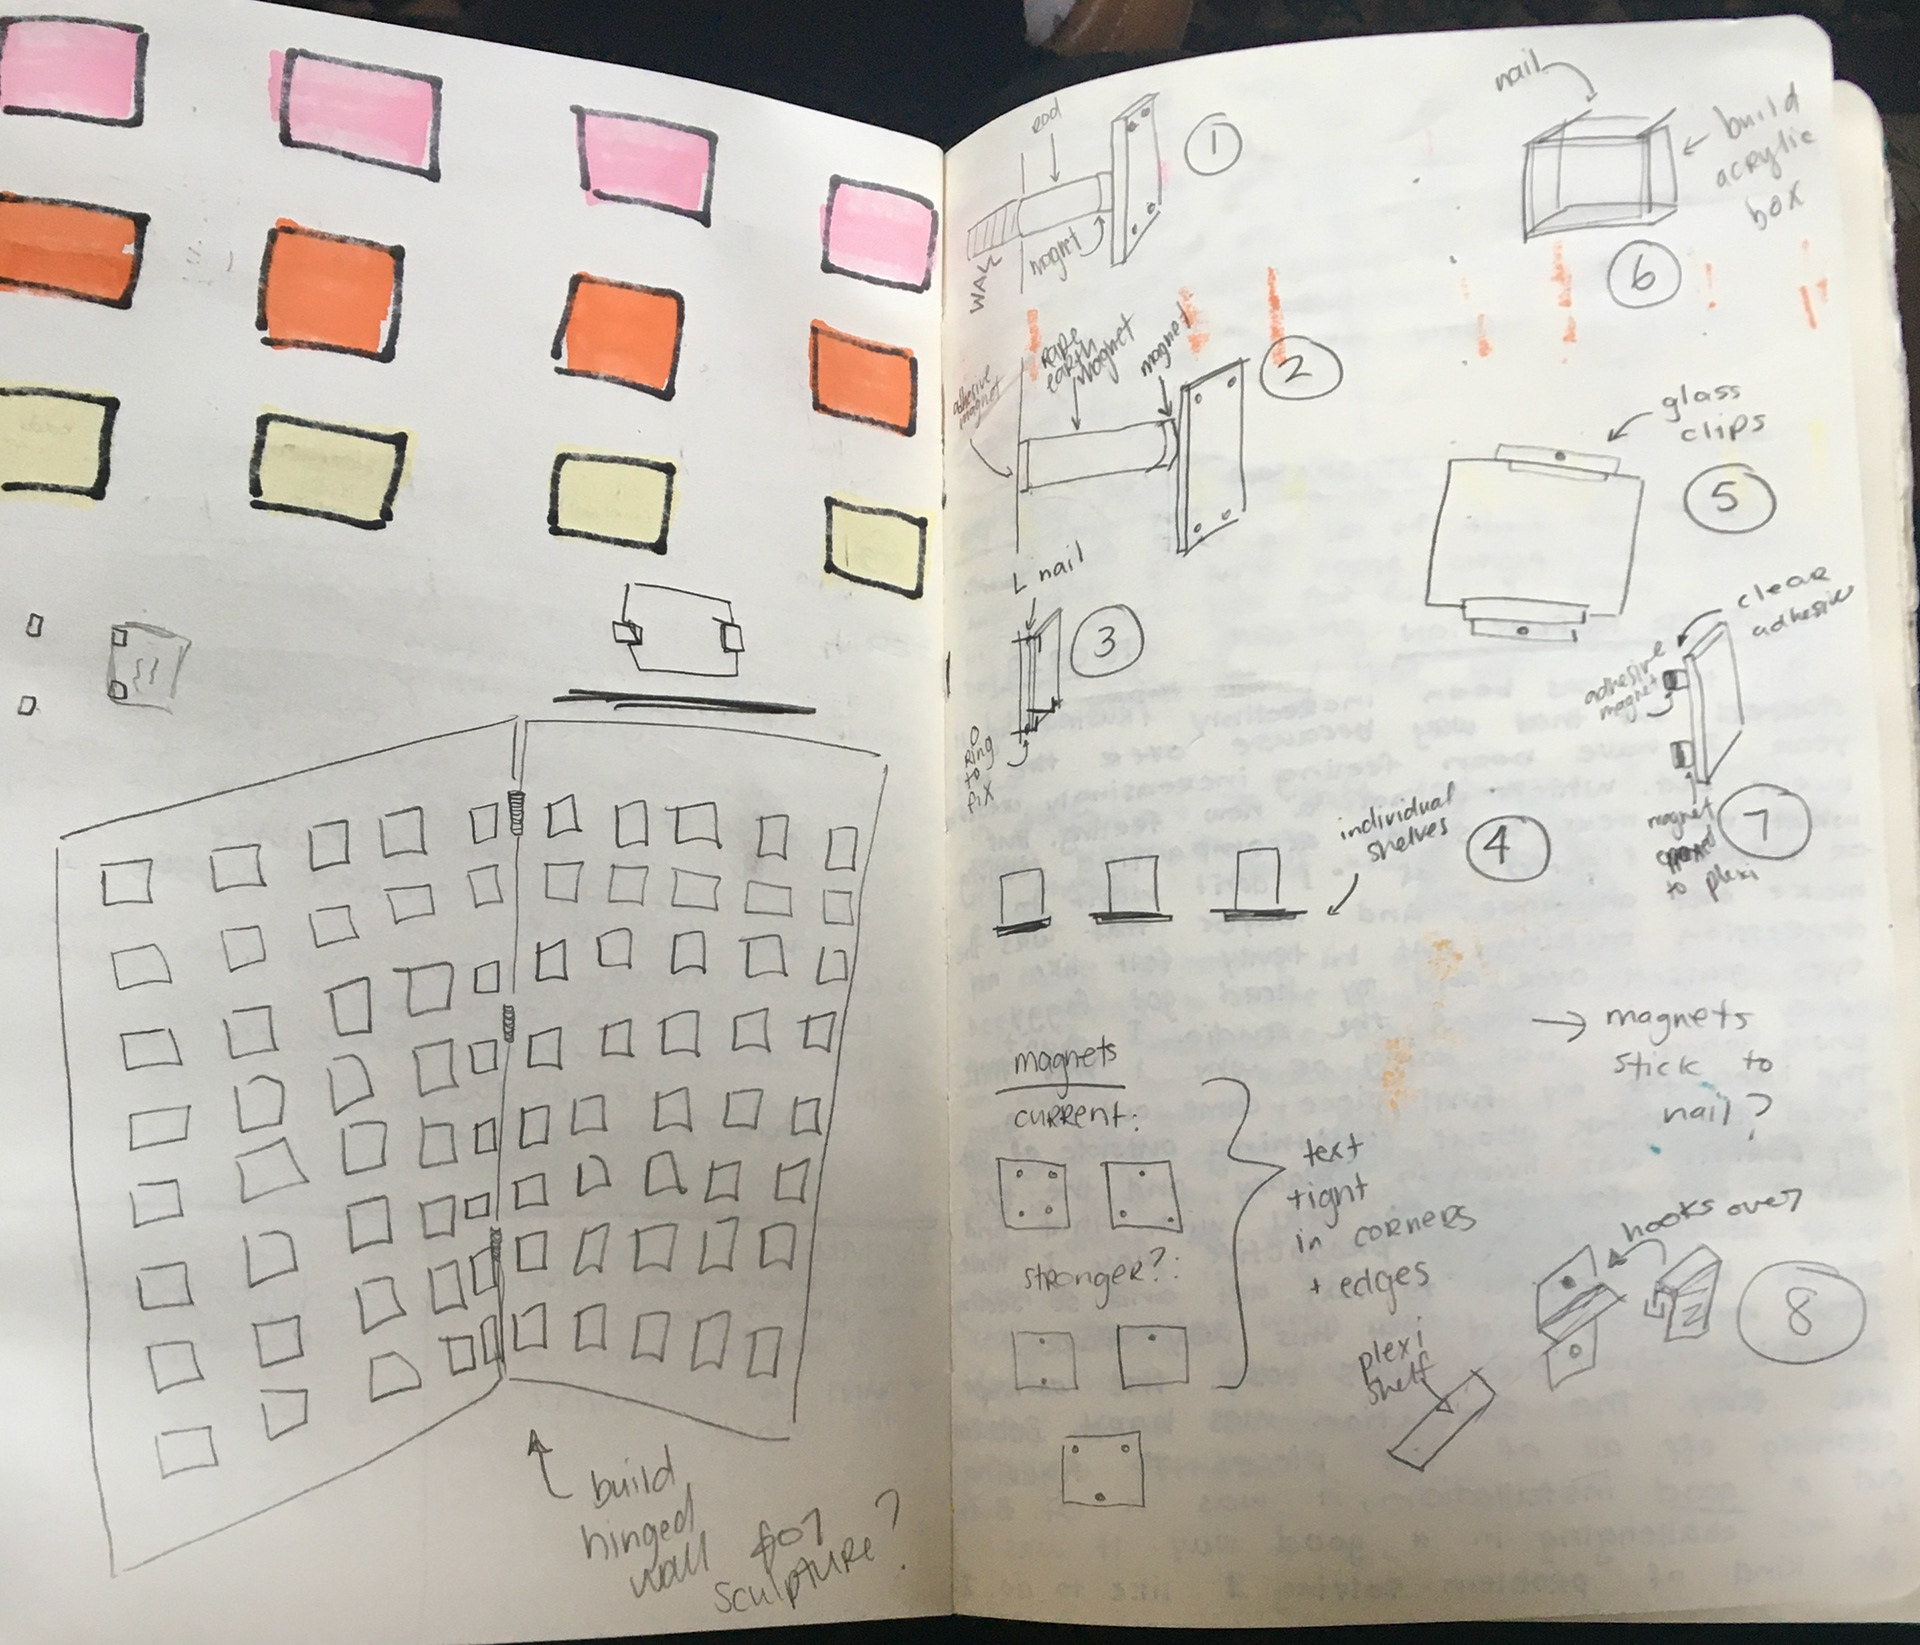 build
hinged
wall for
sculpture?
rod
1
magnet
WALL
nail
build
acrylic
box
6
adhesive
magnet
rare
earth
magnet
magnet
2
glass
clips
5
L nail
3
O
Ring
to
fix
clear
adhesive
adhesive
magnet
7
magnet
to plexi
individual
shelves
4
magnets
current:
stronger?:
text
tight
in corners
+ edges
→ magnets
stick to
nail?
hooks over
8
plexi
shelf